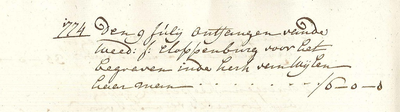 1774 Den 9 Julij ontfangen van de
Wed: J: Cloppenburg voor het
begraven inde kerk van Wijlen
haar man - - - - - - - ƒ6-0-0